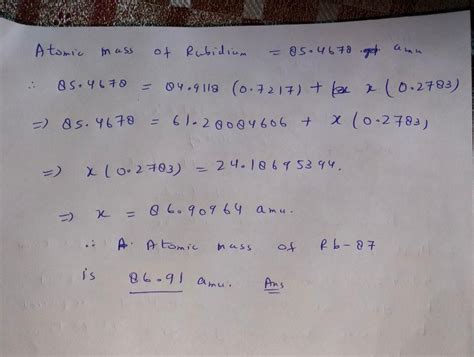 Atomic mass of Rubidium = 85.4678 amu
∴ 85.4678 = 84.9118 (0.7217) + x (0.2783)
=> 85.4678 = 61.28084606 + x (0.2783)
=> x (0.2783) = 24.18695394.
=> x = 86.90964 amu.
∴ A. Atomic mass of Rb-87
is 86.91 amu. Ans